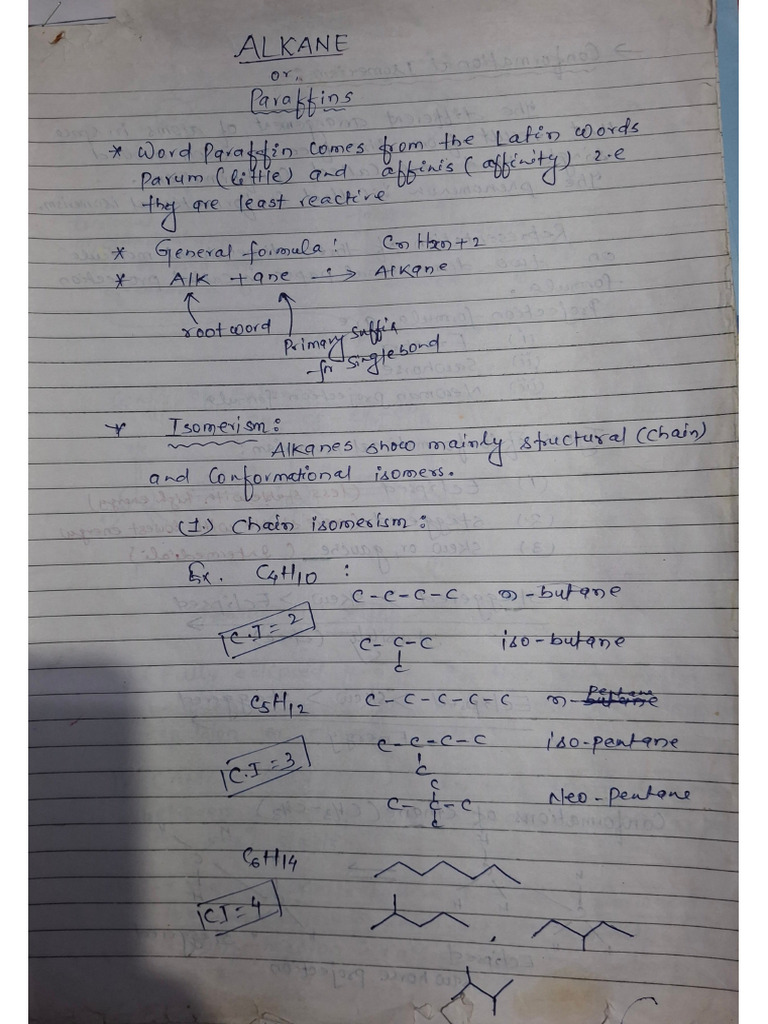 ALKANE
or,
Paraffins
* Word Paraffin comes from the Latin words
Parum (little) and affinis (affinity) i.e
they are least reactive
* General formula: CnH2n+2
* Alk + ane → Alkane
root word
Primary suffix
for single bond
* Isomerism:
Alkanes show mainly structural (Chain)
and Conformational isomers.
(1.) Chain isomerism:
Ex. C4H10 :
C-C-C-C n-butane
C.I=2
C-C-C iso-butane
C
C5H12 C-C-C-C-C n-butane Pentane
C-C-C-C iso-pentane
C
C.I=3
C
C-C-C Neo-Pentane
C
C6H14
C.I=4